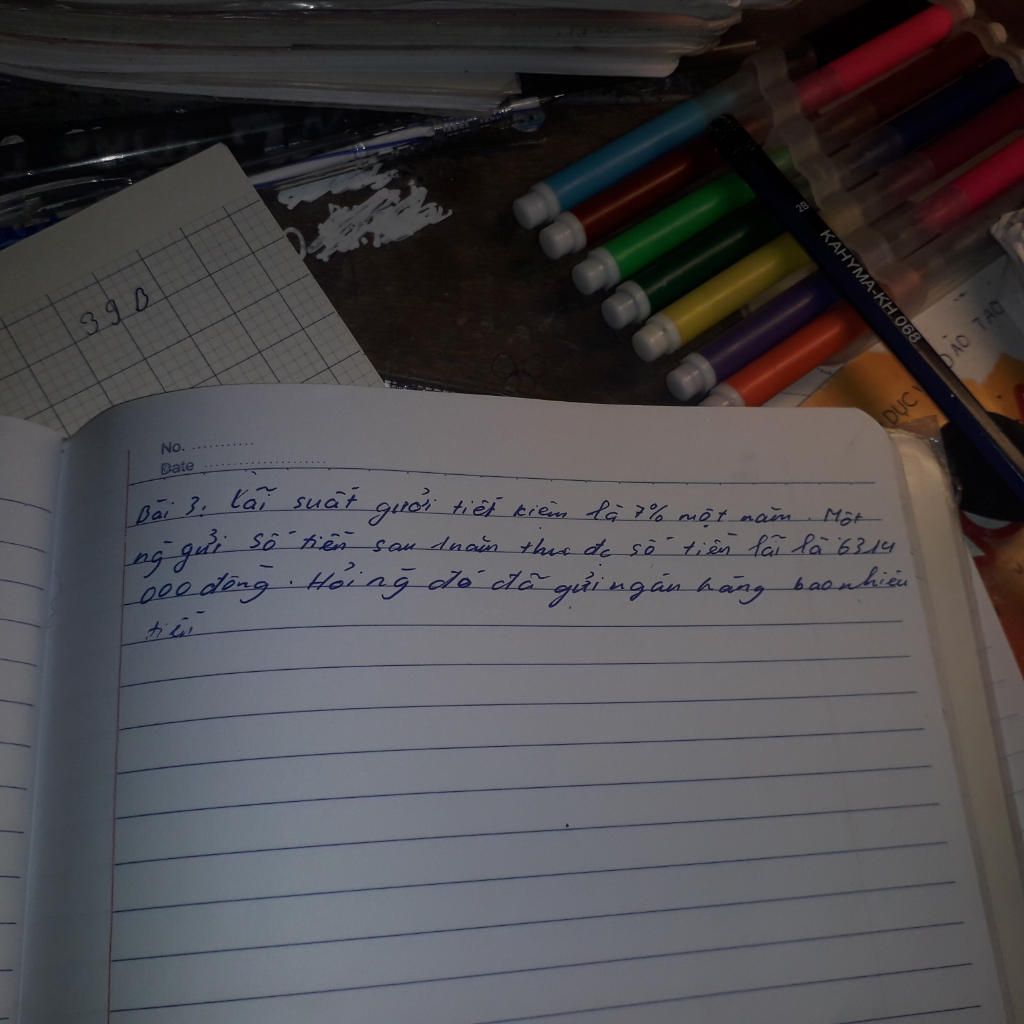 39B
28 KAHYMA-KH.068
DỤC
ĐÀO TẠO
No. ...........
Date .....................
Bài 3. Lãi suất gưởi tiết kiệm là 7% một năm. Một
ng̃ gửi số tiền sau 1 năm thu đc số tiền lãi là 6314
000 đồng. Hỏi ng̃ đó đã gửi ngân hàng bao nhiêu
tiền